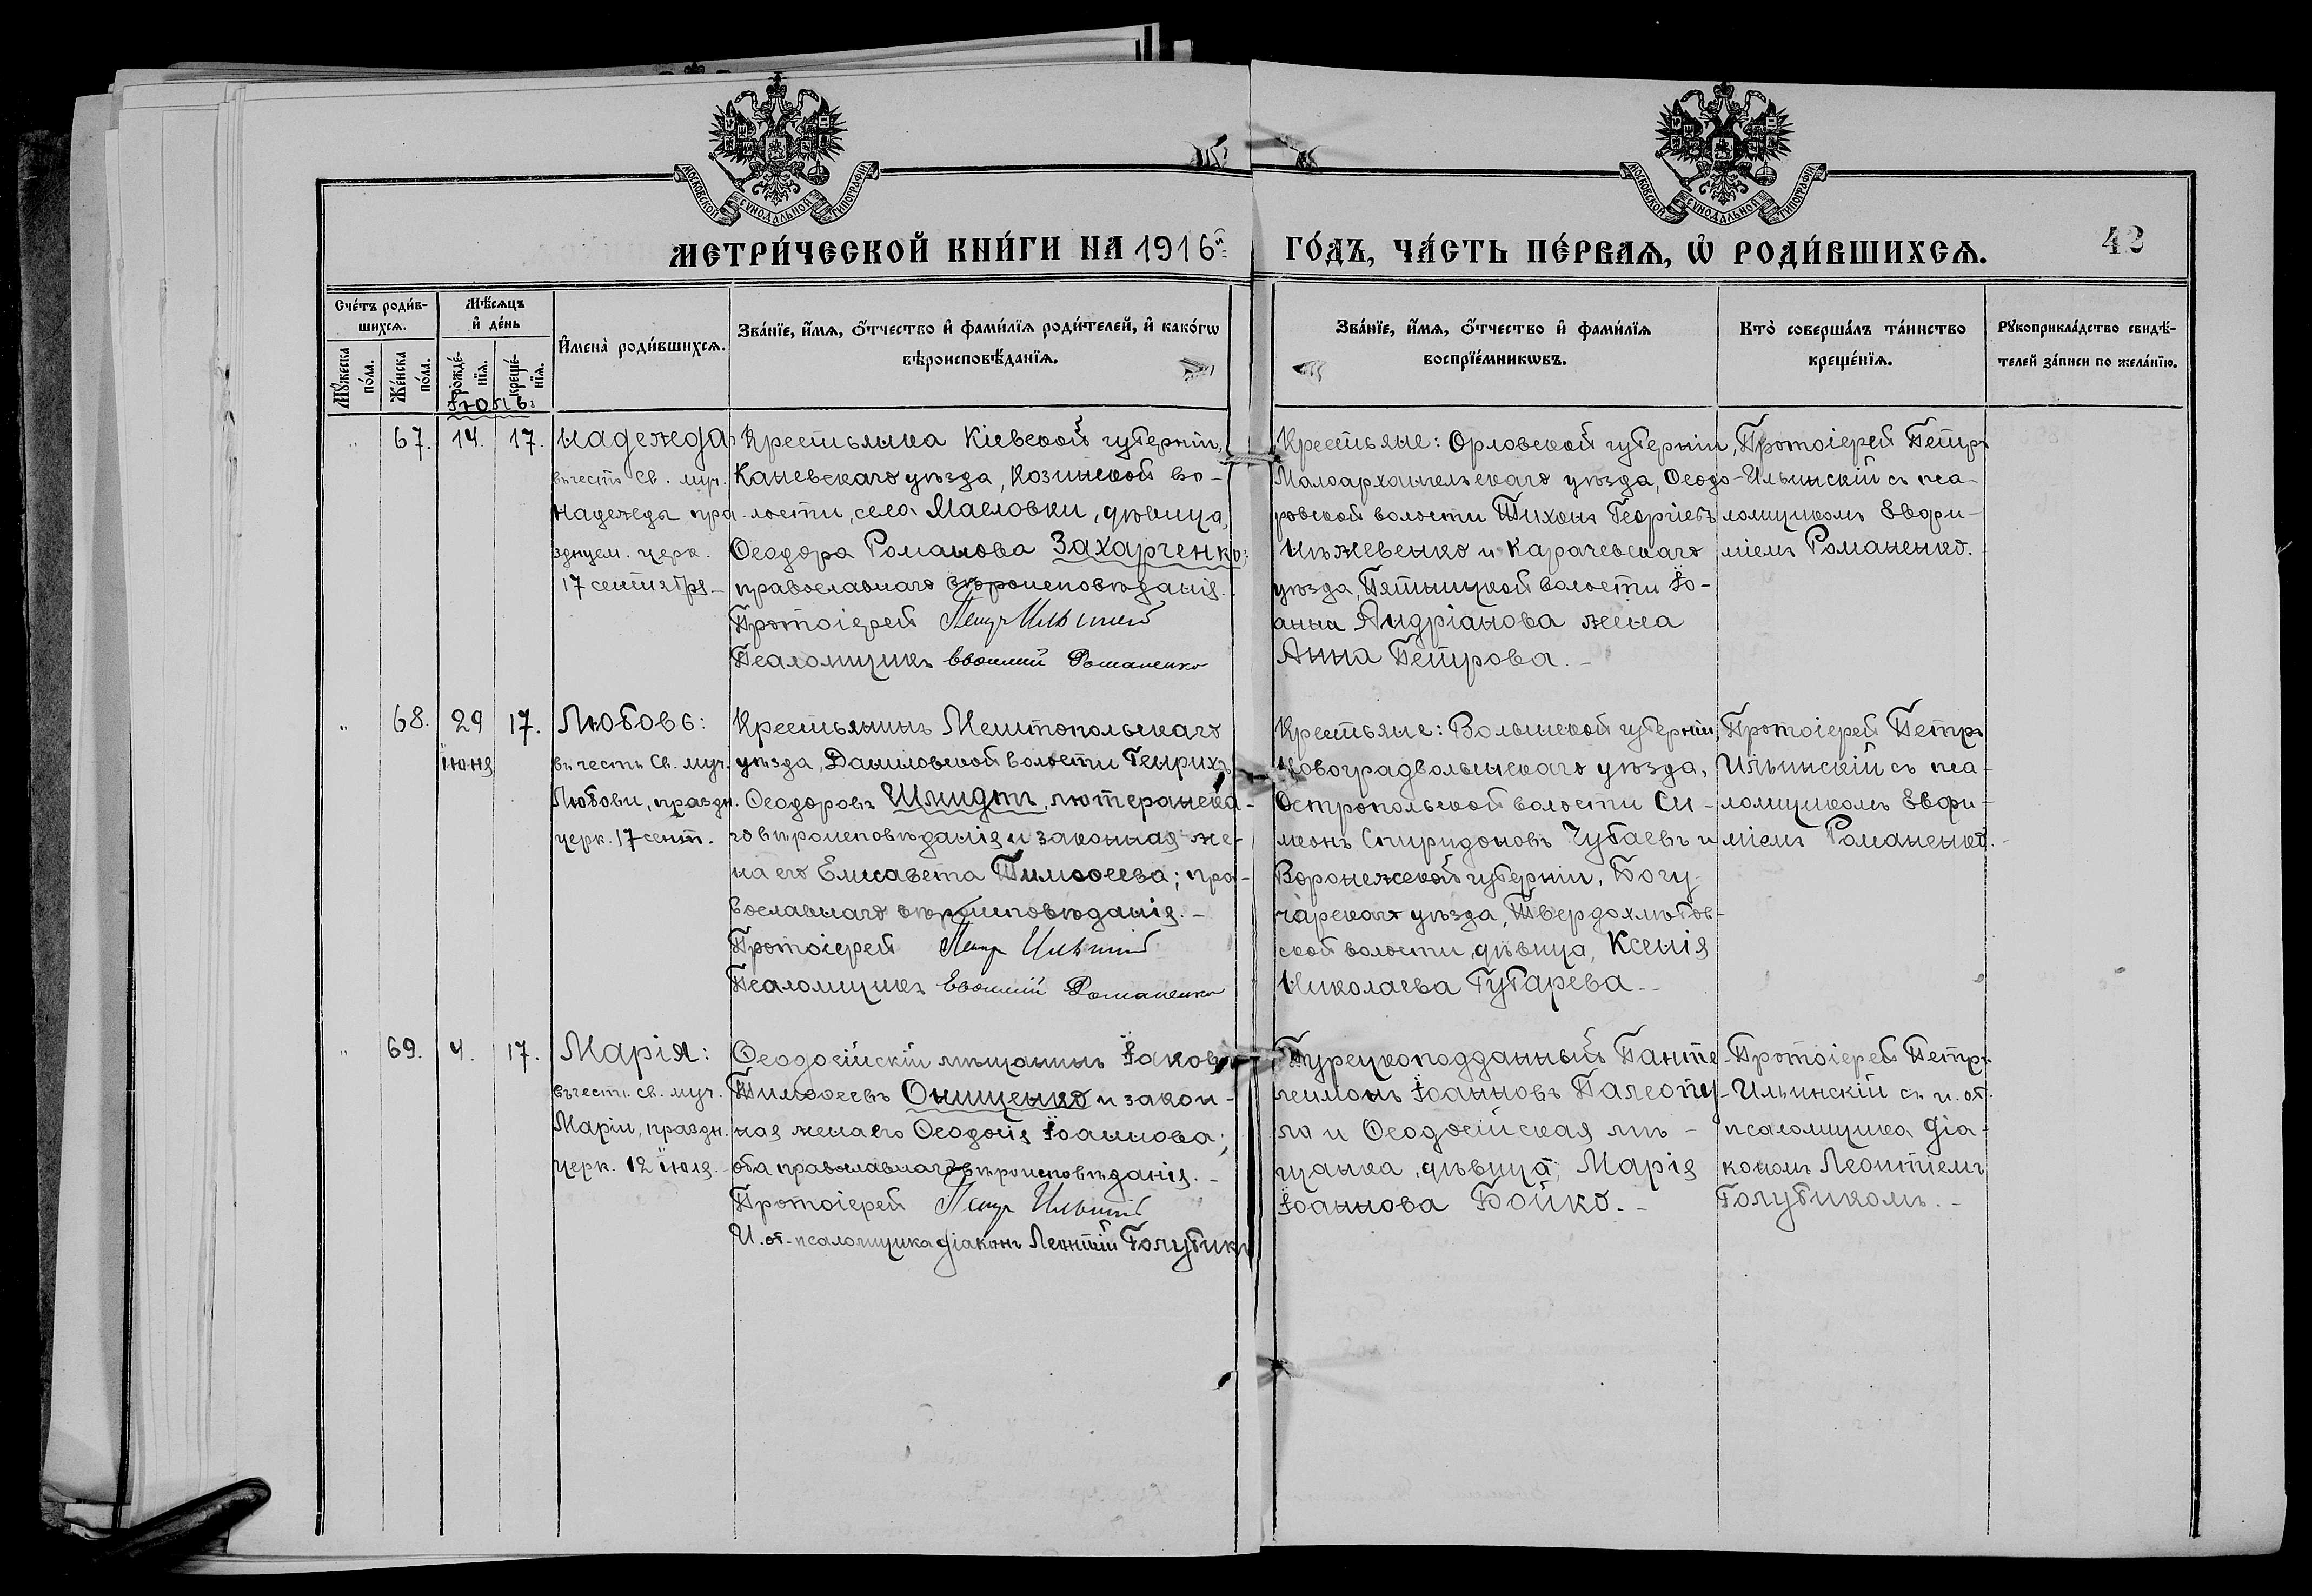 МОСКОВСКОЙ СѴНОДАЛЬНОЙ ТИПОГРАФІИ
МОСКОВСКОЙ СѴНОДАЛЬНОЙ ТИПОГРАФІИ
МЕТРИ́ЧЕСКОЙ КНИ́ГИ НА 1916й
ГО́ДЪ, ЧА́СТЬ ПЕ́РВАѦ, Ѡ҆ РОДИ́ВШИХСѦ.
42
Сче́тъ роди́в-
шихсѧ.
Мꙋ́жеска по́ла.
Же́нска по́ла.
Мѣ́сѧцъ
и҆ де́нь
рожде́-нїѧ.
креще́-нїѧ.
Іюль:
И҆мена̀ роди́вшихсѧ.
Зва́нїе, и҆́мѧ, ѻ҆́тчество и҆ фами́лїѧ роди́телей, и҆ како́гѡ
вѣроисповѣ́данїѧ.
Зва́нїе, и҆́мѧ, ѻ҆́тчество и҆ фами́лїѧ
воспрїе́мникѡвъ.
Кто̀ соверша́лъ та́инство
креще́нїѧ.
Рꙋкоприкла́дство свидѣ́-
телей за́писи по жела́нїю.
" 67. 14. 17.
Надежда
въ честь св. муч.
Надежды пра-
зднуем. церк.
17 сентября
Крестьянка Кіевской губерніи,
Каневскаго уѣзда, Козинской во-
лости, села Масловки, дѣвица,
Ѳеодора Романова Захарченко;
православнаго вѣроисповѣданія.
Протоіерей Петръ Ильинскій
Псаломщикъ Евѳимій Романенко
Крестьяне: Орловской губерніи,
Малоархангельскаго уѣзда, Ѳеодо-
ровской волости Тихонъ Георгіевъ
Инжевенко и Карачевскаго
уѣзда, Пятницкой волости Іо-
анна Андріанова жена
Анна Петрова. –
Протоіерей Петръ
Ильинскій съ пса-
ломщикомъ Евфи-
міемъ Романенко.
" 68. 29 17.
іюня
Любовь:
въ честь св. муч.
Любови, праздн.
церк. 17 сент.
Крестьянинъ Мелитопольскаго
уѣзда, Даниловской волости Генрихъ
Ѳеодоровъ Шмидтъ, лютеранска-
го вѣроисповѣданія и законная же-
на его Елисавета Тимоѳеева; пра-
вославнаго вѣроисповѣданія. –
Протоіерей Петръ Ильинскій
Псаломщикъ Евѳимій Романенко
Крестьяне: Волынской губерніи,
Новоградволынскаго уѣзда,
Остропольской волости Си-
меонъ Спиридоновъ Чубаевъ и
Воронежской губерніи, Богу-
чарскаго уѣзда, Твердохлѣбов-
ской волости, дѣвица, Ксенія
Николаева Губарева. –
Протоіерей Петръ
Ильинскій съ пса-
ломщикомъ Евфи-
міемъ Романенко.
" 69. 4. 17.
Марія:
въ честь св. муч.
Маріи, праздн.
церк. 12 іюля.
Ѳеодосійскій мѣщанинъ Іаковъ
Тимоѳеевъ Онищенко и закон-
ная жена его Ѳеодосія Іоаннова;
оба православнаго вѣроисповѣданія. –
Протоіерей Петръ Ильинскій
И. об. псаломщика діаконъ Леонтій Голубикъ
Турецкоподданный Панте-
леимонъ Іоанновъ
и Ѳеодосійская мѣ-
щанка, дѣвица, Марія
Іоаннова Бойко. –
Протоіерей Петръ
Ильинскій съ и. об.
псаломщика діа-
кономъ Леонтіемъ
Голубикомъ. –